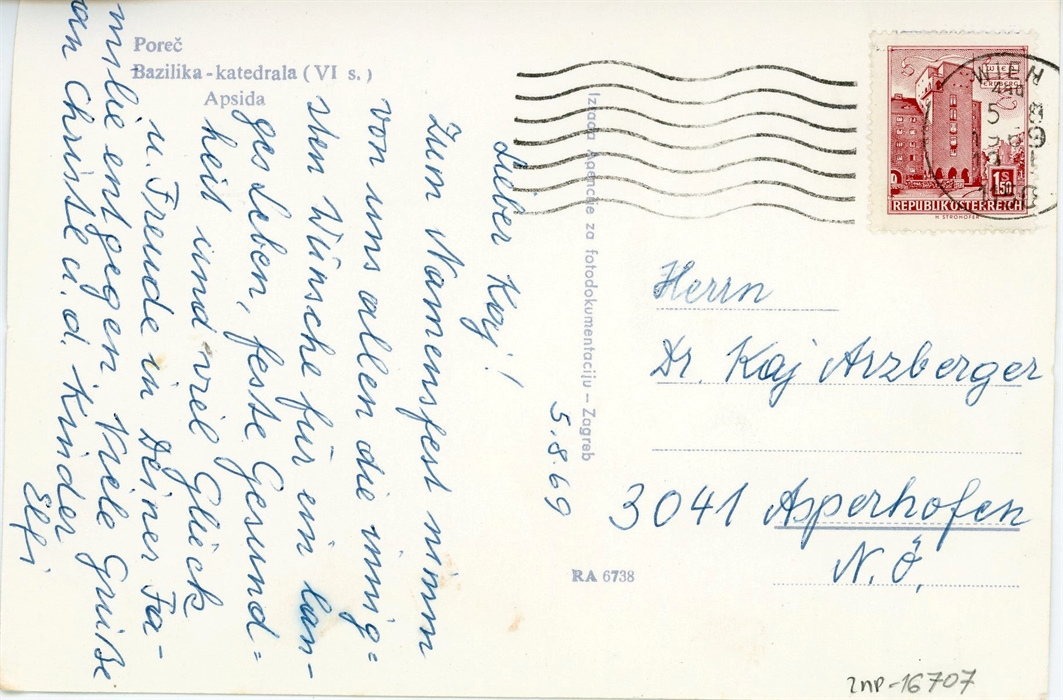 Poreč
Bazilika-katedrala (VI s.)
Apsida
Izdaca Agencije za fotodokumentaciju – Zagreb
RA 6738
5.8.69
Lieber Kaj!
Zum Namensfest nimm
von uns allen die innig=
sten Wünsche für ein lan-
ges Leben, feste Gesund=
heit und viel Glück
u. Freude in Deiner Fa-
milie entgegen. Viele Grüße
an Christe u. d. Kinder
Elfi
WIEN
5 8
1969
WIEN
ERDBERG
1 S 50
REPUBLIK ÖSTERREICH
H. STROHOFER
Herrn
Dr. Kaj Arzberger
3041 Asperhofen
N.Ö.
znp-16707